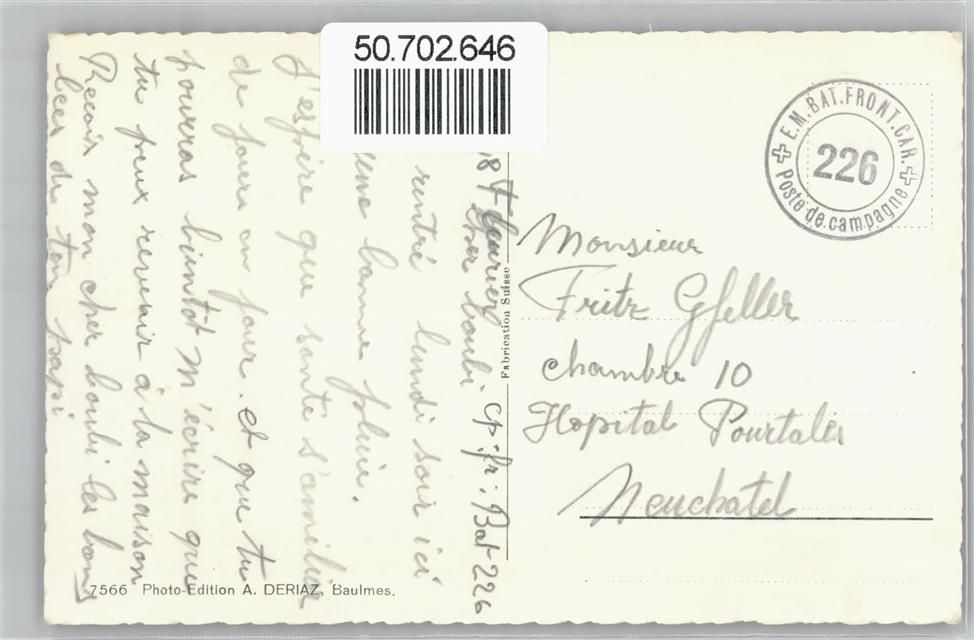 50.702.646
E.M.BAT.FRONT.CAR.
226
Poste de campagne
cp. fr. Bat 226
rentré lundi soir ici
une bonne pluie.
J'espère que santé s'améliore
de jours en jour. et que tu
pourras bientôt m'écrire que
tu peux revenir à la maison
Reçois mon cher loulu les bons
becs de ton papi
Fabrication Suisse
Monsieur
Fritz Gfeller
chambre 10
Hopital Pourtalès
Neuchatel
7566 Photo-Edition A. DERIAZ, Baulmes.